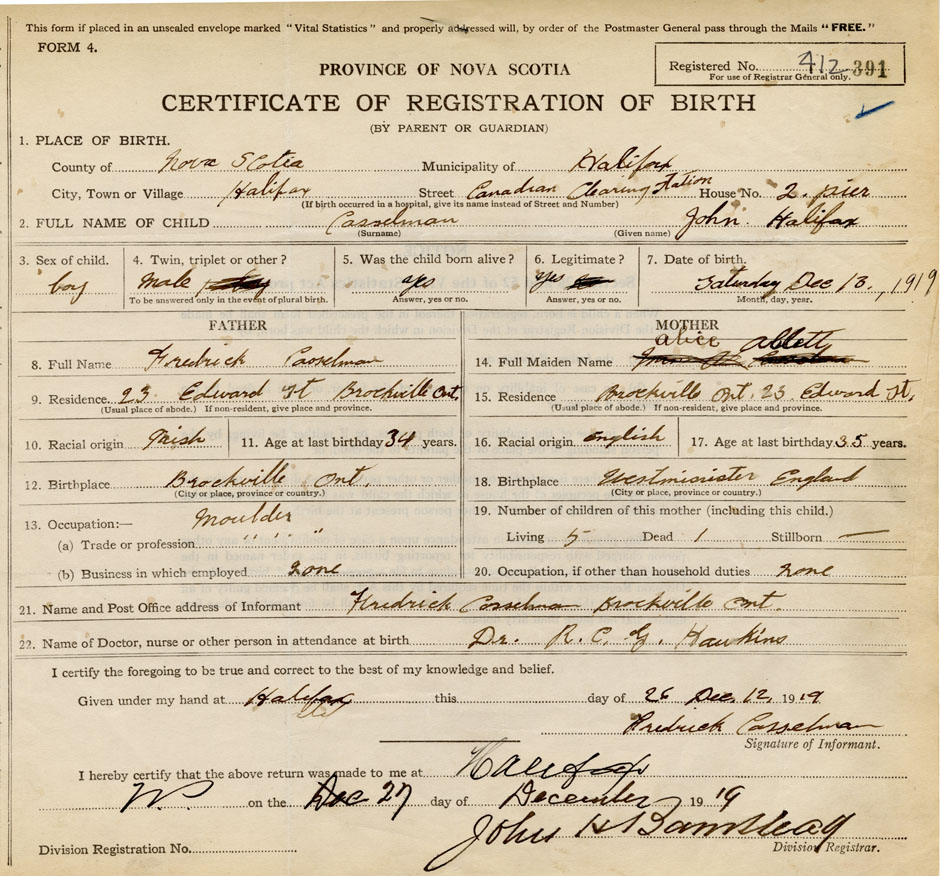 This form if placed in an unsealed envelope marked "Vital Statistics" and properly addressed will, by order of the Postmaster General pass through the Mails "FREE."
FORM 4.
Registered No. 412 391
For use of Registrar General only.
PROVINCE OF NOVA SCOTIA
CERTIFICATE OF REGISTRATION OF BIRTH
(BY PARENT OR GUARDIAN)
1. PLACE OF BIRTH.
County of Nova Scotia Municipality of Halifax
City, Town or Village Halifax Street Canadian Clearing Station House No. 2. pier
(If birth occurred in a hospital, give its name instead of Street and Number)
2. FULL NAME OF CHILD Casselman John. Halifax
(Surname) (Given name)
3. Sex of child. 4. Twin, triplet or other? 5. Was the child born alive? 6. Legitimate? 7. Date of birth.
boy male yes yes Saturday Dec 13., 1919
To be answered only in the event of plural birth. Answer, yes or no. Answer, yes or no. Month, day, year.
FATHER MOTHER
8. Full Name Fredrick Casselman 14. Full Maiden Name alice Abletty
9. Residence 23 Edward St Brockville Ont, 15. Residence Brockville Ont. 23 Edward St,
(Usual place of abode.) If non-resident, give place and province. (Usual place of abode.) If non-resident, give place and province.
10. Racial origin Irish 11. Age at last birthday 34 years. 16. Racial origin english 17. Age at last birthday 35 years.
12. Birthplace Brockville Ont. 18. Birthplace Westminister England
(City or place, province or country.) (City or place, province or country.)
13. Occupation:— Moulder 19. Number of children of this mother (including this child.)
(a) Trade or profession " " " " Living 5 Dead 1 Stillborn —
(b) Business in which employed none 20. Occupation, if other than household duties none
21. Name and Post Office address of Informant Fredrick Casselman Brockville Ont.
22. Name of Doctor, nurse or other person in attendance at birth Dr. R. C. G. Hawkins
I certify the foregoing to be true and correct to the best of my knowledge and belief.
Given under my hand at Halifax this day of 26 Dec, 12, 1919
Fredrick Casselman
Signature of Informant.
I hereby certify that the above return was made to me at Halifax
on the Dec 27 day of December 1919
John H
Division Registration No. Division Registrar.